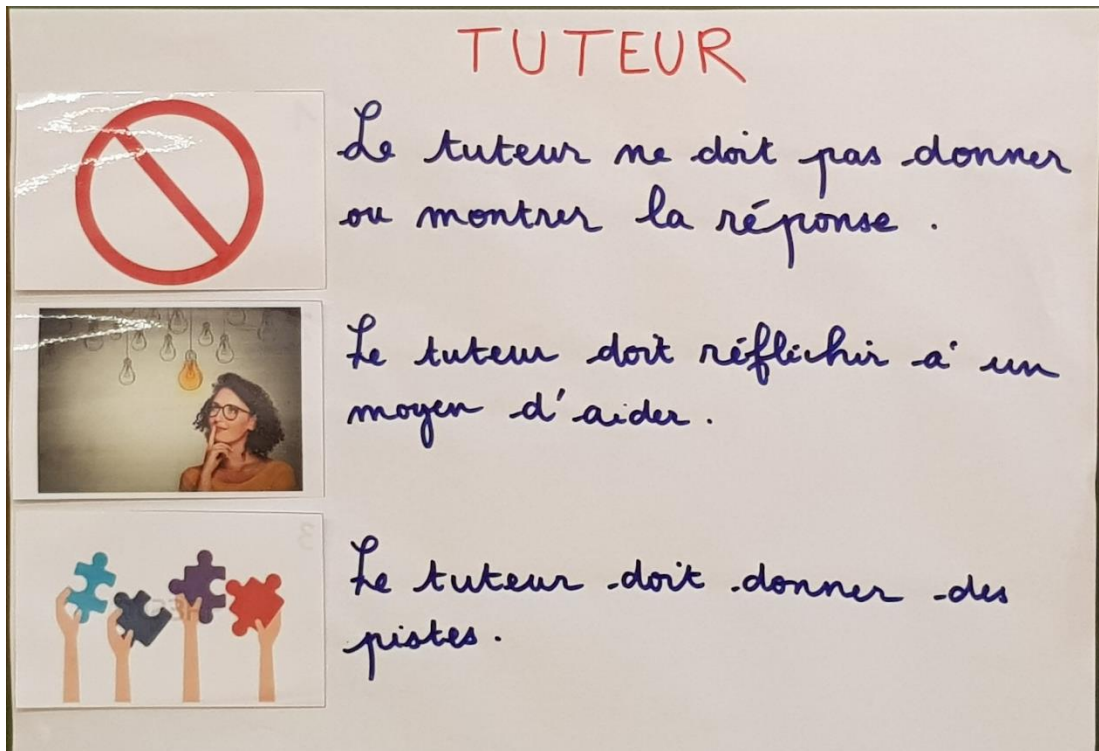 TUTEUR
Le tuteur ne doit pas donner
ou montrer la réponse.
Le tuteur doit réfléchir à un
moyen d'aider.
Le tuteur doit donner des
pistes.